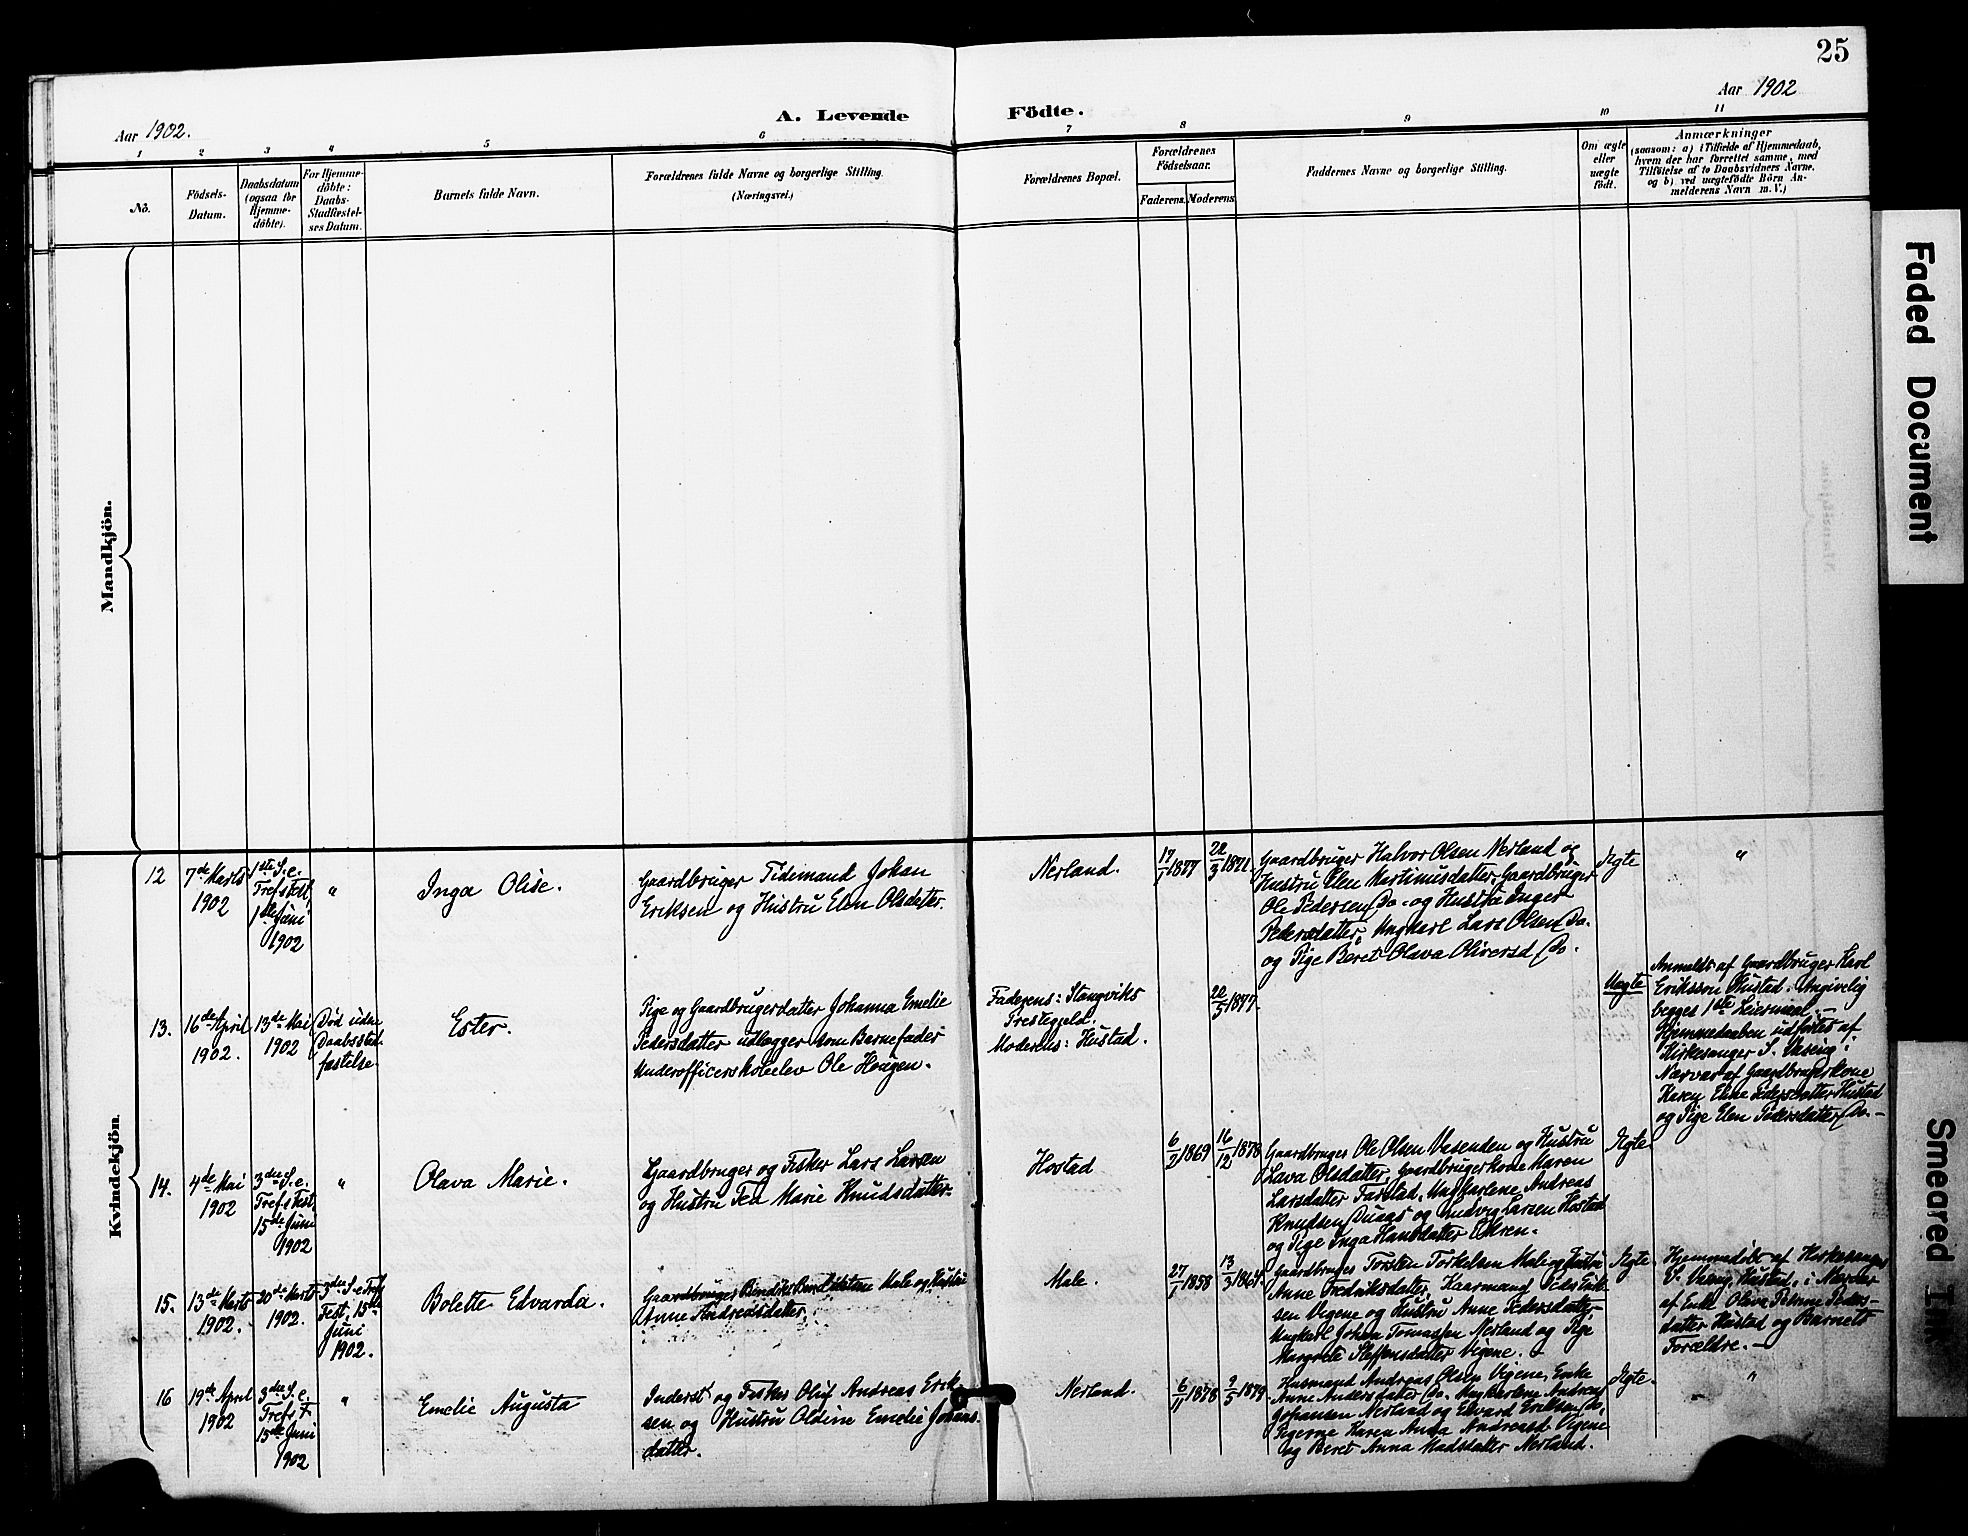 25
Aar 1902.
A. Levende Födte.
Aar 1902
1 2 3 4 5 6 7 8 9 10 11
No.
Födsels-
Datum.
Daabsdatum
(ogsaa for
Hjemme-
döbte).
For Hjemme-
döbte:
Daabs-
Stadfæstel-
ses Datum.
Barnets fulde Navn.
Forældrenes fulde Navne og borgerlige Stilling.
(Næringsvei.)
Forældrenes Bopæl.
Forældrenes
Födselsaar.
Faderens. Moderens.
Faddernes Navne og borgerlige Stilling.
Om ægte
eller
uægte
födt.
Anmærkninger
(saasom: a) i Tilfælde af Hjemmedaab,
hvem der har forrettet samme, med
Tilföielse af to Daabsvidners Navne.
og b) ved uægtefödte Börn An-
melderens Navn m. V.)
Mandkjön.
Kvindekjön.
12
7de Marts
1902
1ste S. e.
Trefs Fest,
1ste Juni
1902
"
Inga Olise.
Gaardbruger Tidemand Johan
Eriksen og Hustru Elen Olsdatter.
Nerland.
17/1 1877
22/3 1871.
Gaardbruger Halvor Olsen Nerland og
Hustru Elen Martinusdatter, Gaardbruger
Ole Pedersen Do. og Hustru Inger
Pedersdatter, Ungkarl Lars Olsen Do.
og Pige Beret Olava Oliversd Do.
Ægte
"
13.
16de April
1902.
13de Mai
1902
Död uden
Daabsstad-
fæstelse.
Ester.
Pige og Gaardbrugerdatter Johanna Emelie
Pedersdatter udlægger som Barnefader
Underofficersskoleelev Ole Hougen.
Faderens: Stangviks
Prestegjeld.
Moderens: Hustad.
20/5 1877.
Uægte
Anmeldt af Gaardbruger Karl
Eriksson Hustad. Angivelig
begges 1ste Leiermaal.
Hjemmedaaben udförtes af
Kirkesanger S. Vaseng i
Nærvær af Gaardbrugerkone
Karen Eline Pedersdatter Hustad
og Pige Elen Pedersdatter Do.
14.
4de Mai
1902
3die S. e.
Trefs Fest,
15de Juni
1902
"
Olava Marie.
Gaardbruger og Fisker Lars Larsen
og Hustru Tea Marie Knudsdatter.
Hostad
6/2 1869
16/12 1878
Gaardbruger Ole Olsen Vasenden og Hustru
Lava Olsdatter, Gaardbrugerkone Maren
Larsdatter Farstad, Ungkarlene Andreas
Knudsen Duaas og Ludvig Larsen Hostad
og Pige Inga Hansdatter
Ægte
15.
13de Marts
1902.
20de Marts
1902.
3die S. e Tref
Fest, 15de
Juni
1902.
Bolette Edvarda.
Gaardbruger Bendik Bendiktsen Male og Hustru
Anne Andreasdatter,
Male.
27/1 1858
13/3 1864.
Gaardbruger Torsten Torkelsen Male og Hustru
Anne Fredriksdatter, Kaarmand Peder Erik-
sen Vegene og Hustru Anne Pedersdatter
Ungkarl Johan Tomassen Nerland og Pige
Margrete Steffensdatter Vegene.
Ægte.
Hjemmedöbt af Kirkesanger
S. Vaseng, Hustad, i Nærvær
af Enke Olava Petrine Peders-
datter Hustad og Barnets
Forældre.
16
19de April
1902
3die S. e.
Trefs F.
15de Juni
1902
"
Emelie Augusta
Inderst og Fisker Oluf Andreas Erik-
sen og Hustru Oldine Emelie Johans-
datter.
Nerland.
6/11 1878
9/5 1879
Husmand Andreas Olsen Vegene, Enke
Anne Andersdatter Do. Ungkarlene Andreas
Johansen Nerland og Edvard Eriksen Do,
Pigerne Karen Anna Andreasd Vegene
og Beret Anna Madsdatter Nerland.
Ægte.
"
Faded Document
Smeared Ink